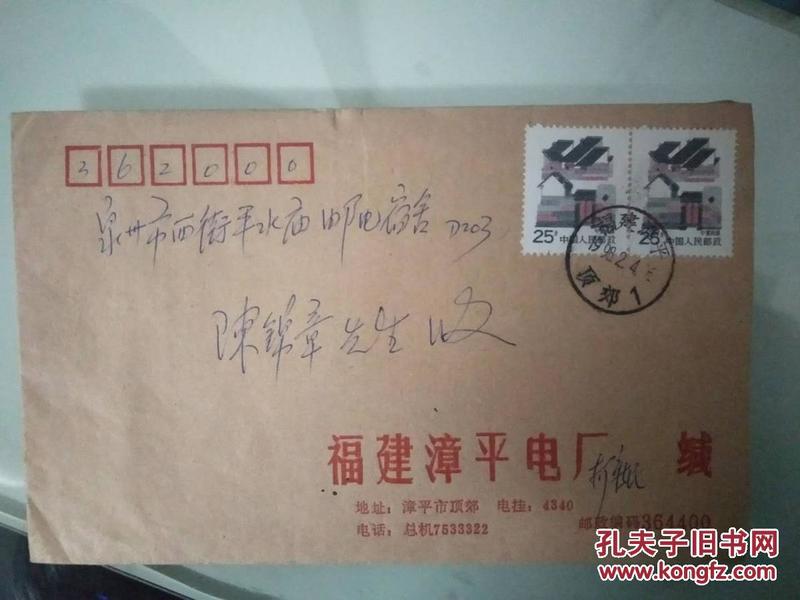 362000
泉州市西街平水庙邮电宿舍D203
陳錦章先生收
25分 中国人民邮政
25分 中国人民邮政
福建漳平
1996.2.4
顶郊1
福建漳平电厂 缄
地址：漳平市顶郊 电挂：4340
电话：总机7533322 邮政编码364400
孔夫子旧书网
www.kongfz.com